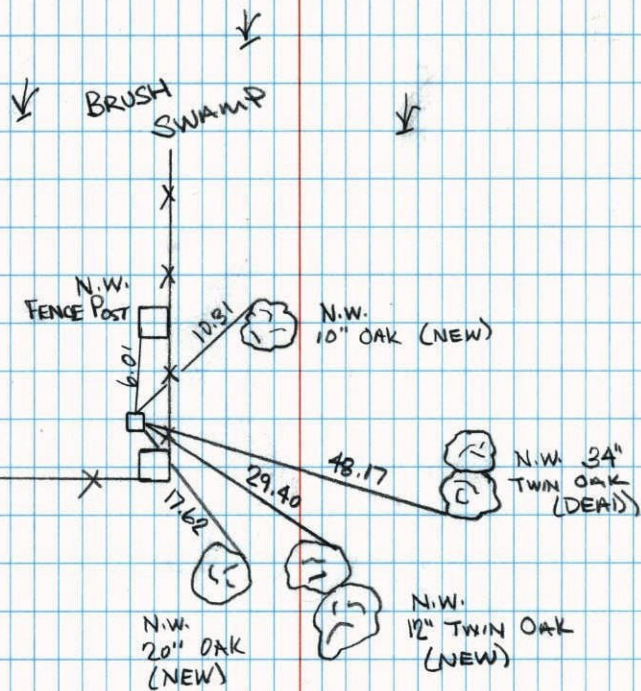 BRUSH
SWAMP
N.W.
FENCE POST
6.01
10.31
N.W.
10" OAK (NEW)
48.17
N.W. 34"
TWIN OAK
(DEAD)
29.40
17.62
N.W.
20" OAK
(NEW)
N.W.
12" TWIN OAK
(NEW)